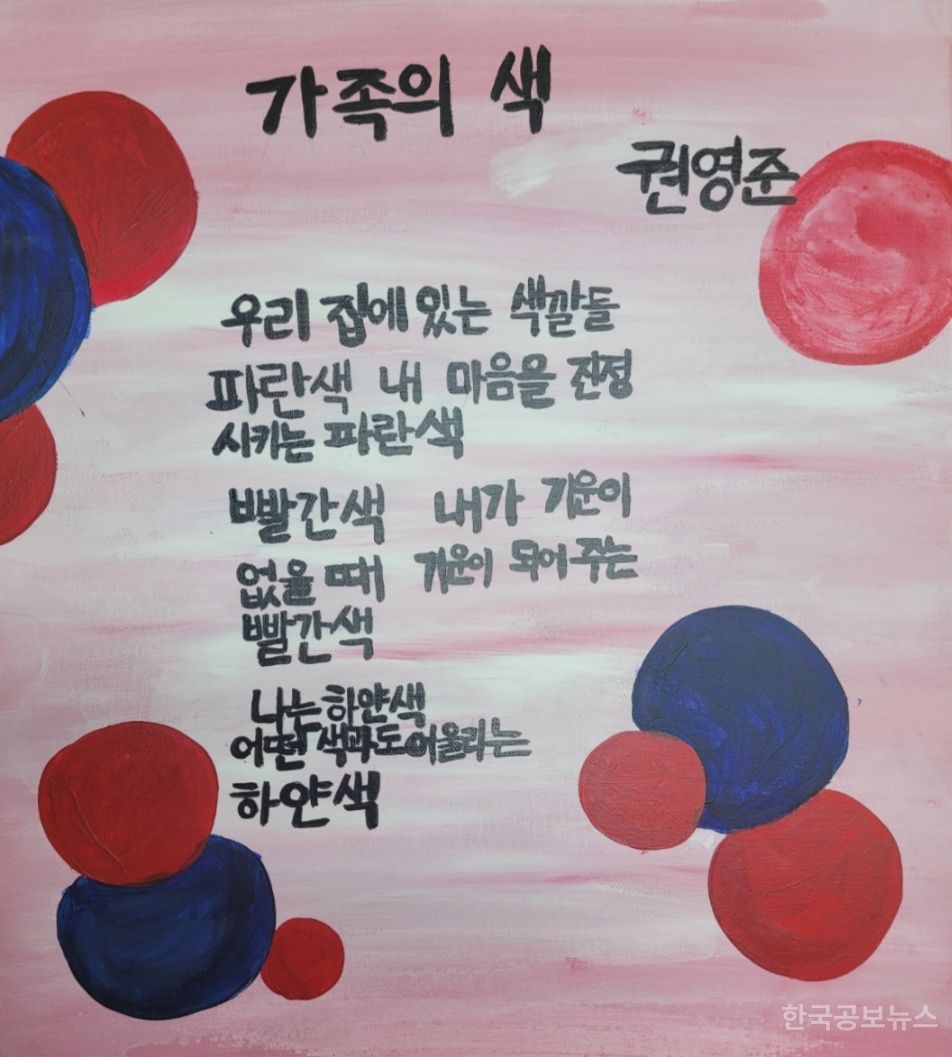 가족의 색
권영준
우리 집에 있는 색깔들
파란색 내 마음을 진정
시키는 파란색
빨간색 내가 기운이
없을 때 기운이 되어 주는
빨간색
나는 하얀색
어떤 색과도 어울리는
하얀색
한국공보뉴스